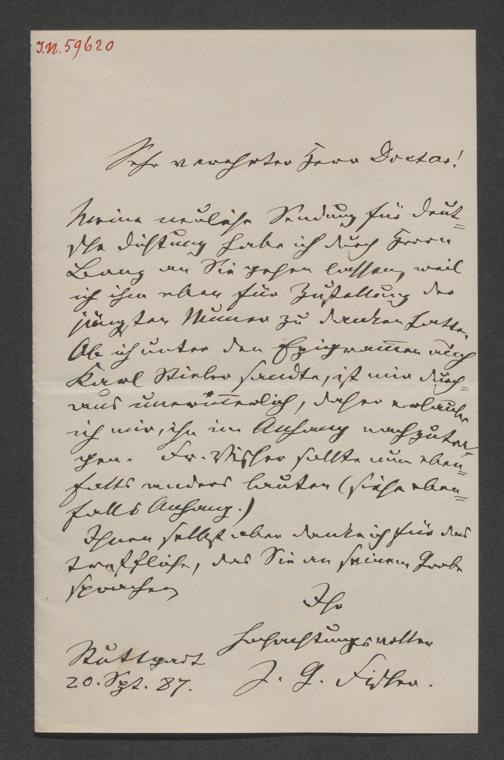 I.N. 59620
Sehr verehrter Herr Doctor!
Meine neuliche Sendung für deut=
sche Dichtung habe ich durch Herrn
Bonz an Sie gehen lassen, weil
ich ihm eben für Zustellung der
jüngsten Numer zu danken hatte.
Ob ich unter den Epigram̅en auch
Karl Stieler sandte, ist mir durch=
aus unerin̅erlich, daher erlaube
ich mir, ihn im Anhang nachzutra=
gen. Fr. Vischer sollte nun eben=
falls anders lauten (siehe eben=
falls Anhang.)
Ihnen selbst aber danke ich für das
treffliche, das Sie an seinem Grabe
sprachen,
Ihr
hochachtungsvoller
Stuttgart
20. Spt. 87.
J. G. Fischer.